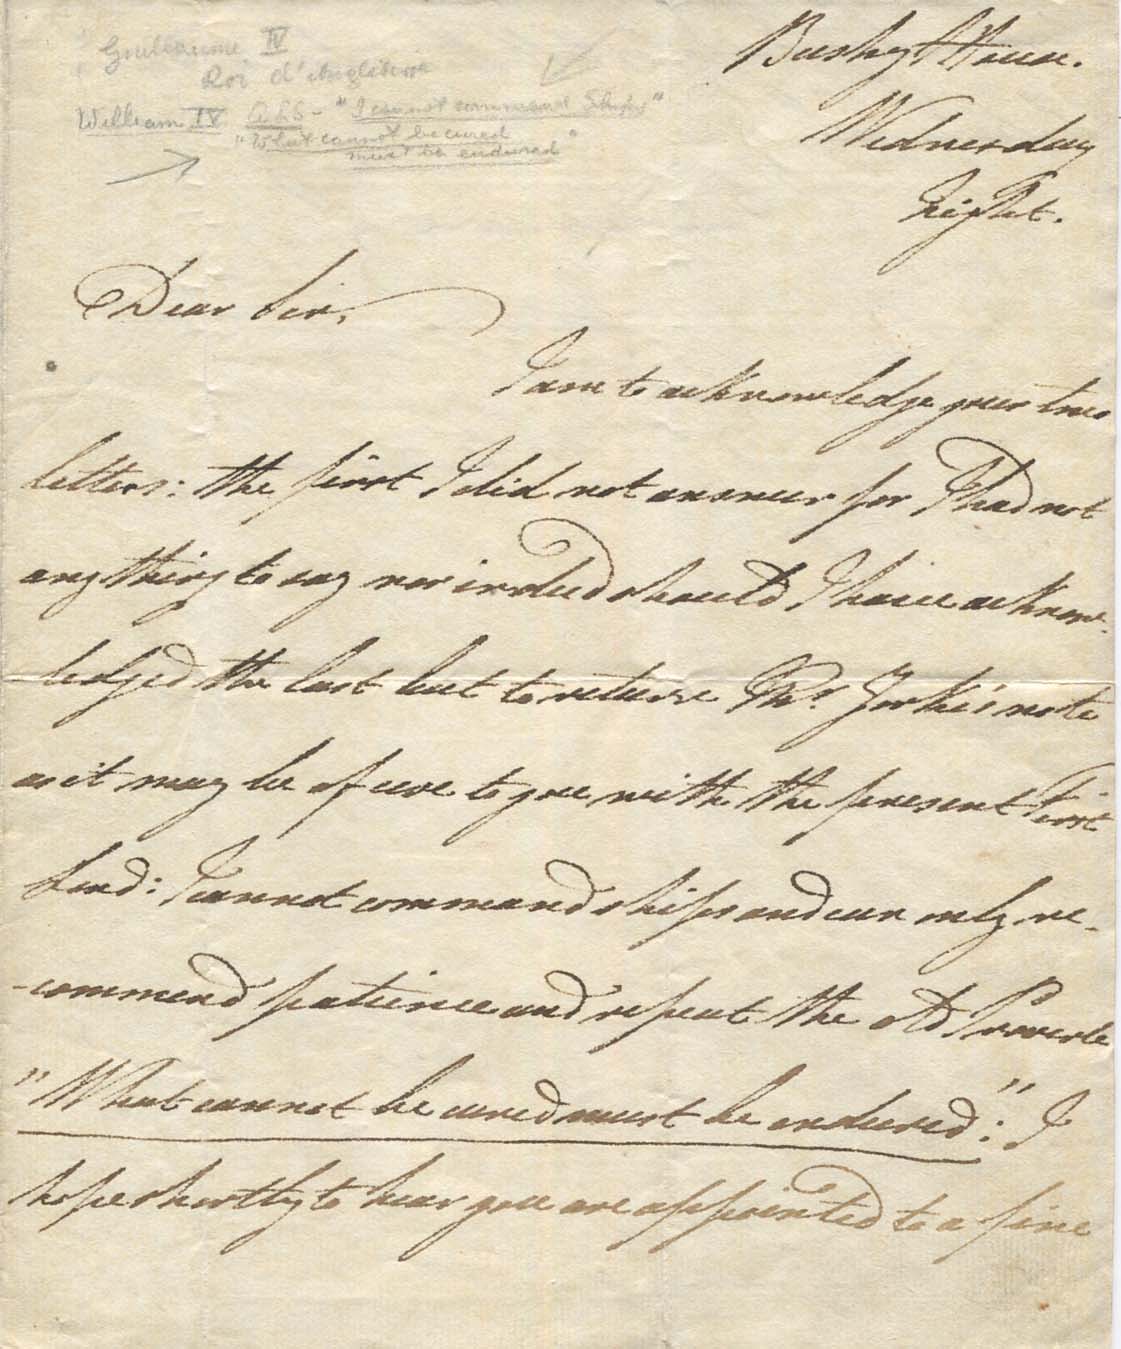 Guillaume IV
Roi d'Angleterre
William IV ALS - "I cannot command Ships"
"What cannot be cured
must be endured"
Bushy House.
Wednesday
Night.
Dear Sir,
I am to acknowledge your two
letters: the first I did not answer for I had not
any thing to say nor indeed should I have acknow-
ledged the last but to return Mr. Yorke's note
as it may be of use to you with the present First
Lord: I cannot command ships and can only re-
-commend patience and repeat the old Proverb
"What cannot be cured must be endured": I
hope shortly to hear you are appointed to a fine